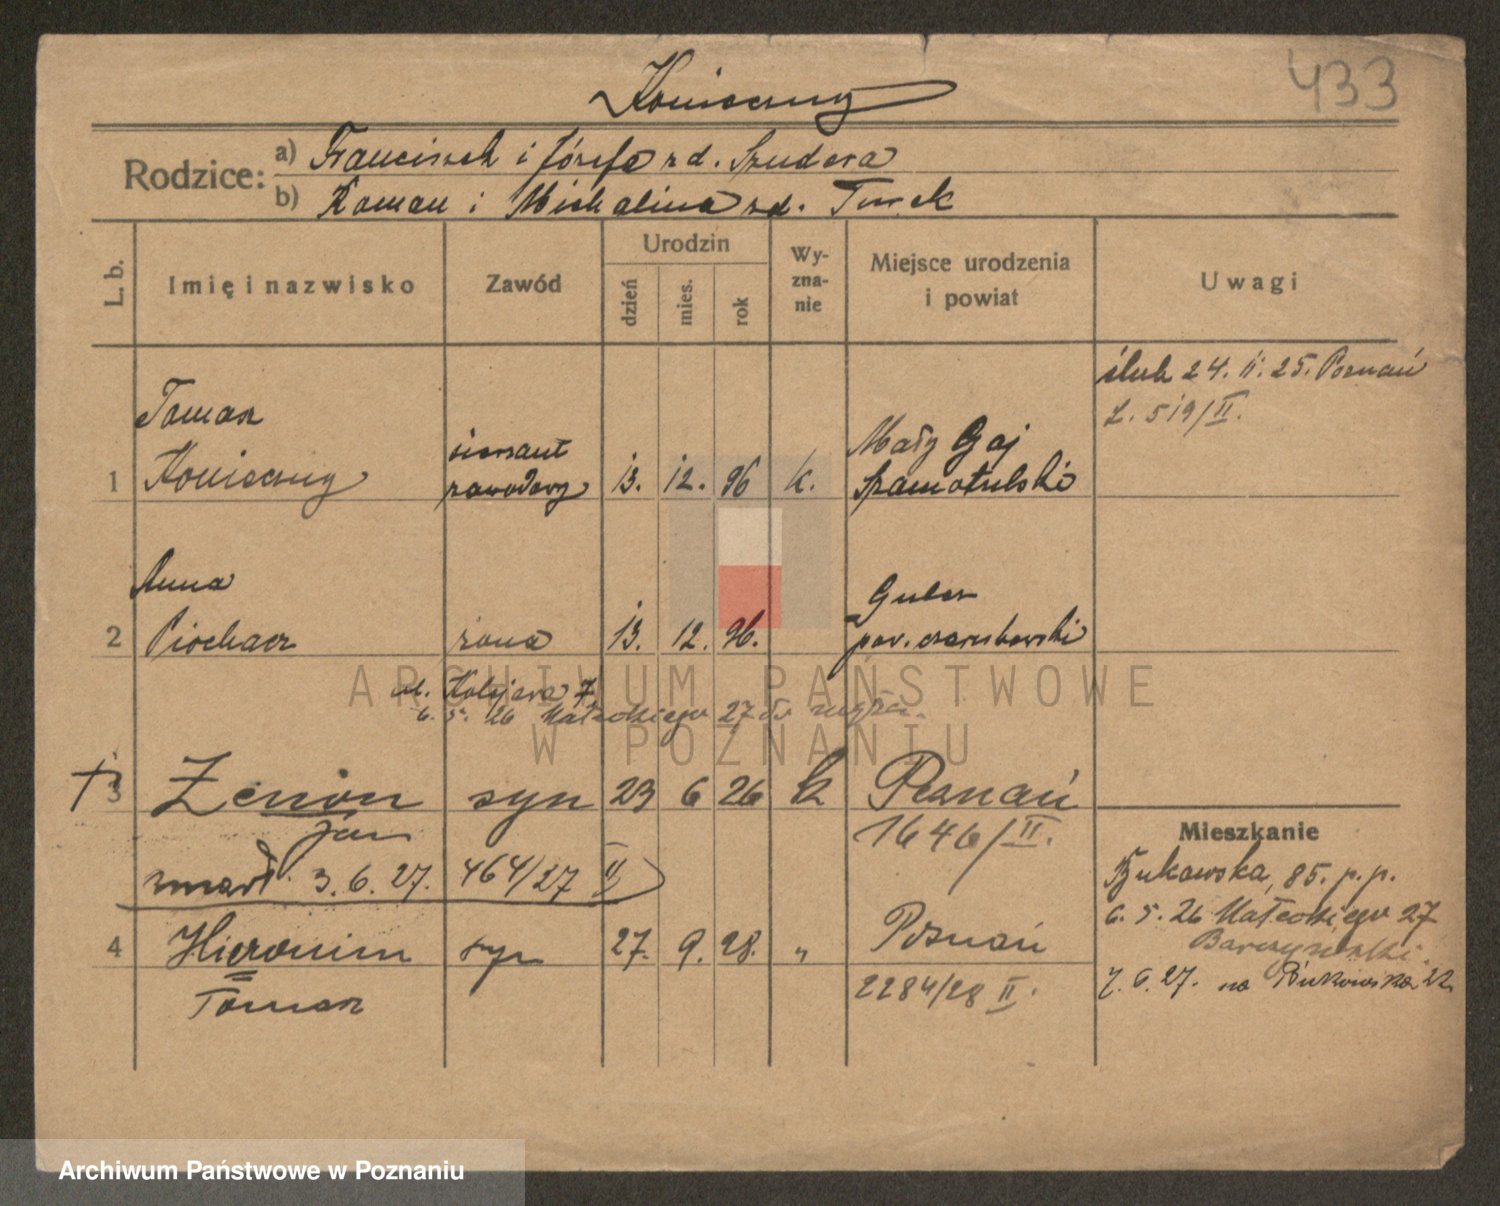 433
Konieczny
Rodzice:
a) Franciszek i Józefa z d. Szudera
b) Roman i Michalina z d. Turek
L. b.
Imię i nazwisko
Zawód
Urodzin
dzień
mies.
rok
Wy-
zna-
nie
Miejsce urodzenia
i powiat
Uwagi
ślub 24. II. 25. Poznań
L. 519/II.
Tomasz
1 Konieczny
sierżant
zawodowy
13. 12. 96 k.
Mały Gaj
Szamotulski
Anna
2 Piochacz
żona 13. 12. 96.
Gulcz
pow. czarnkowski
ul. 7
6. 5. 26 Małeckiego 27
ARCHIWUM PAŃSTWOWE
W POZNANIU
† 3 Zenon syn 23 6 26 k Poznań
Jan
1646/II.
zmarł 3.6.27. 464/27 II
4 Hieronim syn 27. 9. 28. " Poznań
Tomasz
2284/28 II.
Mieszkanie
Bukowska, 85. p. p.
6. 5. 26 Małeckiego 27
7. 6. 27. na Bukowska
Archiwum Państwowe w Poznaniu